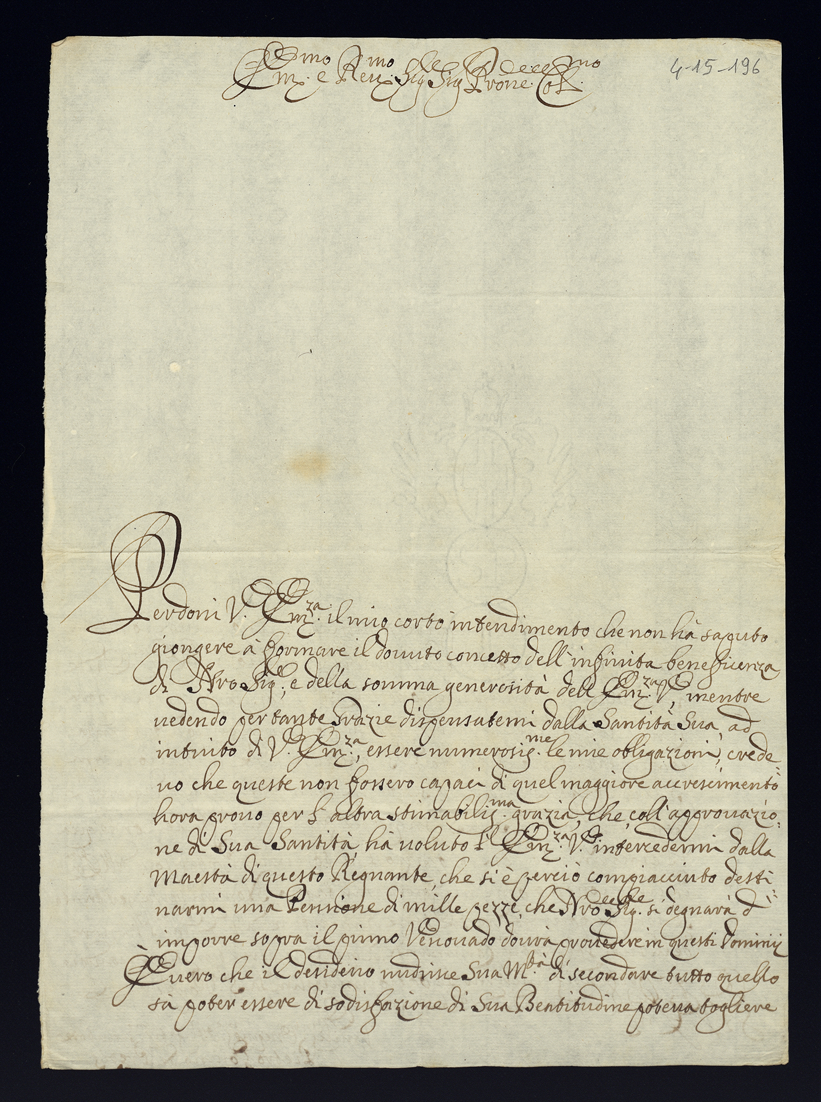 Em.mo e Reu.mo Sig.re Sig.re Prone Col.mo
4-15-196
Perdoni V. Em.za il mio corto intendimento che non hà saputo
giongere à formare il douuto concetto dell'infinita beneficenza
di Nro Sig.re, e della somma generosità dell'Em.za V.ra mentre
uedendo per tante grazie dispensatemi dalla Santità Sua, ad
intuito di V. Em.za, essere numerosis.me le mie obligazioni, crede=
uo che queste non fossero capaci di quel maggiore accrescimento
hora prouo per l'altra stimabilis.ma grazia, che coll'approuazio=
ne di Sua Santità, hà uoluto l'Em.za V.ra intercedermi dalla
Maestà di questo Regnante, che si è perciò compiacciuto desti=
narmi una Pensione di mille pezze, che Nro Sig.re si degnarà d'
imporre sopra il primo Vescouado dourà prouedere in questi Dominij
È uero che il desiderio nudrisce Sua M.tà di secondare tutto quello
sà poter essere di sodisfazione di Sua Beatitudine poteua togliere